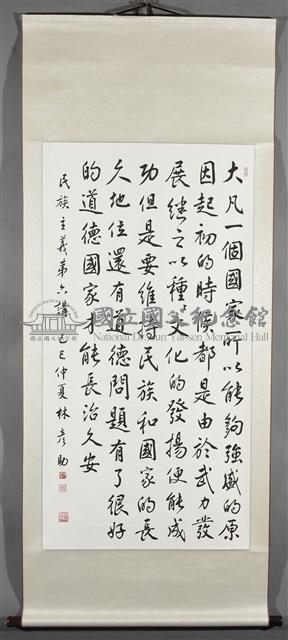 大凡一個國家所以能夠強盛的原
因起初的時候都是由於武力發
展繼之以種〻文化的發揚便能成
功但是要維持民族和國家的長
久地位還有道德問題有了很好
的道德國家才能長治久安
民族主義第六講 巳仲夏林彥助
國立國父紀念館
National Dr. Sun Yat-sen Memorial Hall